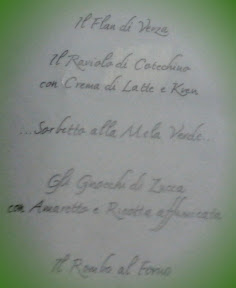 Il Flan di Verza
Il Raviolo di Cotechino
con Crema di Latte e Kren
...Sorbetto alla Mela Verde...
Gli Gnocchi di Zucca
con Amaretto e Ricotta affumicata
Il Rombo al Forno